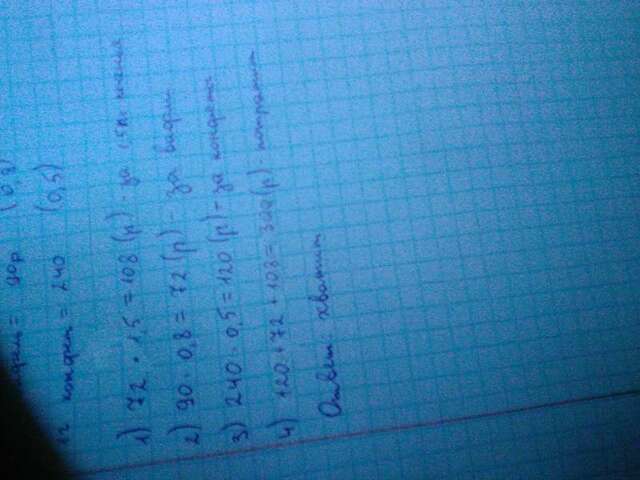 = 90р (0,8)
конфет = 240 (0,5)
1) 72 · 1,5 = 108 (р) - за
2) 90 · 0,8 = 72 (р) - за вафли
3) 240 · 0,5 = 120 (р) - за конфеты
4) 120 + 72 + 108 = 300 (р) - потратит
Ответ: хватит